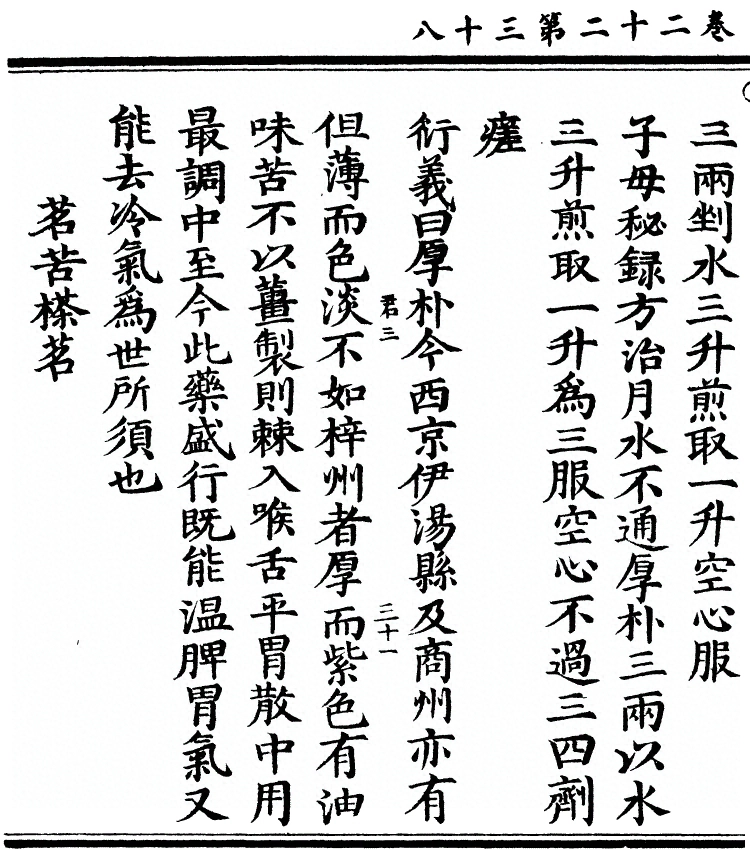 卷二十二第三十八
三兩剉水三升煎取一升空心服
子母秘録方治月水不通厚朴三兩以水
三升煎取一升為三服空心不過三四劑
瘥
衍義曰厚朴今西京伊湯縣及商州亦有
君三
三十一
但薄而色淡不如梓州者厚而紫色有油
味苦不以薑製則棘入喉舌平胃散中用
最調中至今此藥盛行既能温脾胃氣又
能去冷氣為世所須也
茗苦㯂茗